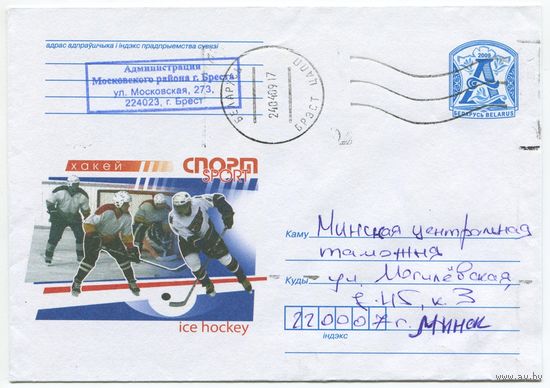 адрас адпраўшчыка і індэкс прадпрыемства сувязі
Администрация
Московского района г. Бреста
ул. Московская, 273,
224023, г. Брест
БЕЛАРУСЬ
240409 17
БРЭСТ ПАПП
2009
А
БЕЛАРУСЬ BELARUS
хакей
СПОРТ
SPORT
ice hockey
Каму Минская центральная
таможня
Куды ул. Могилёвская,
к. 3
220007 г. Минск
індэкс
www.au.by